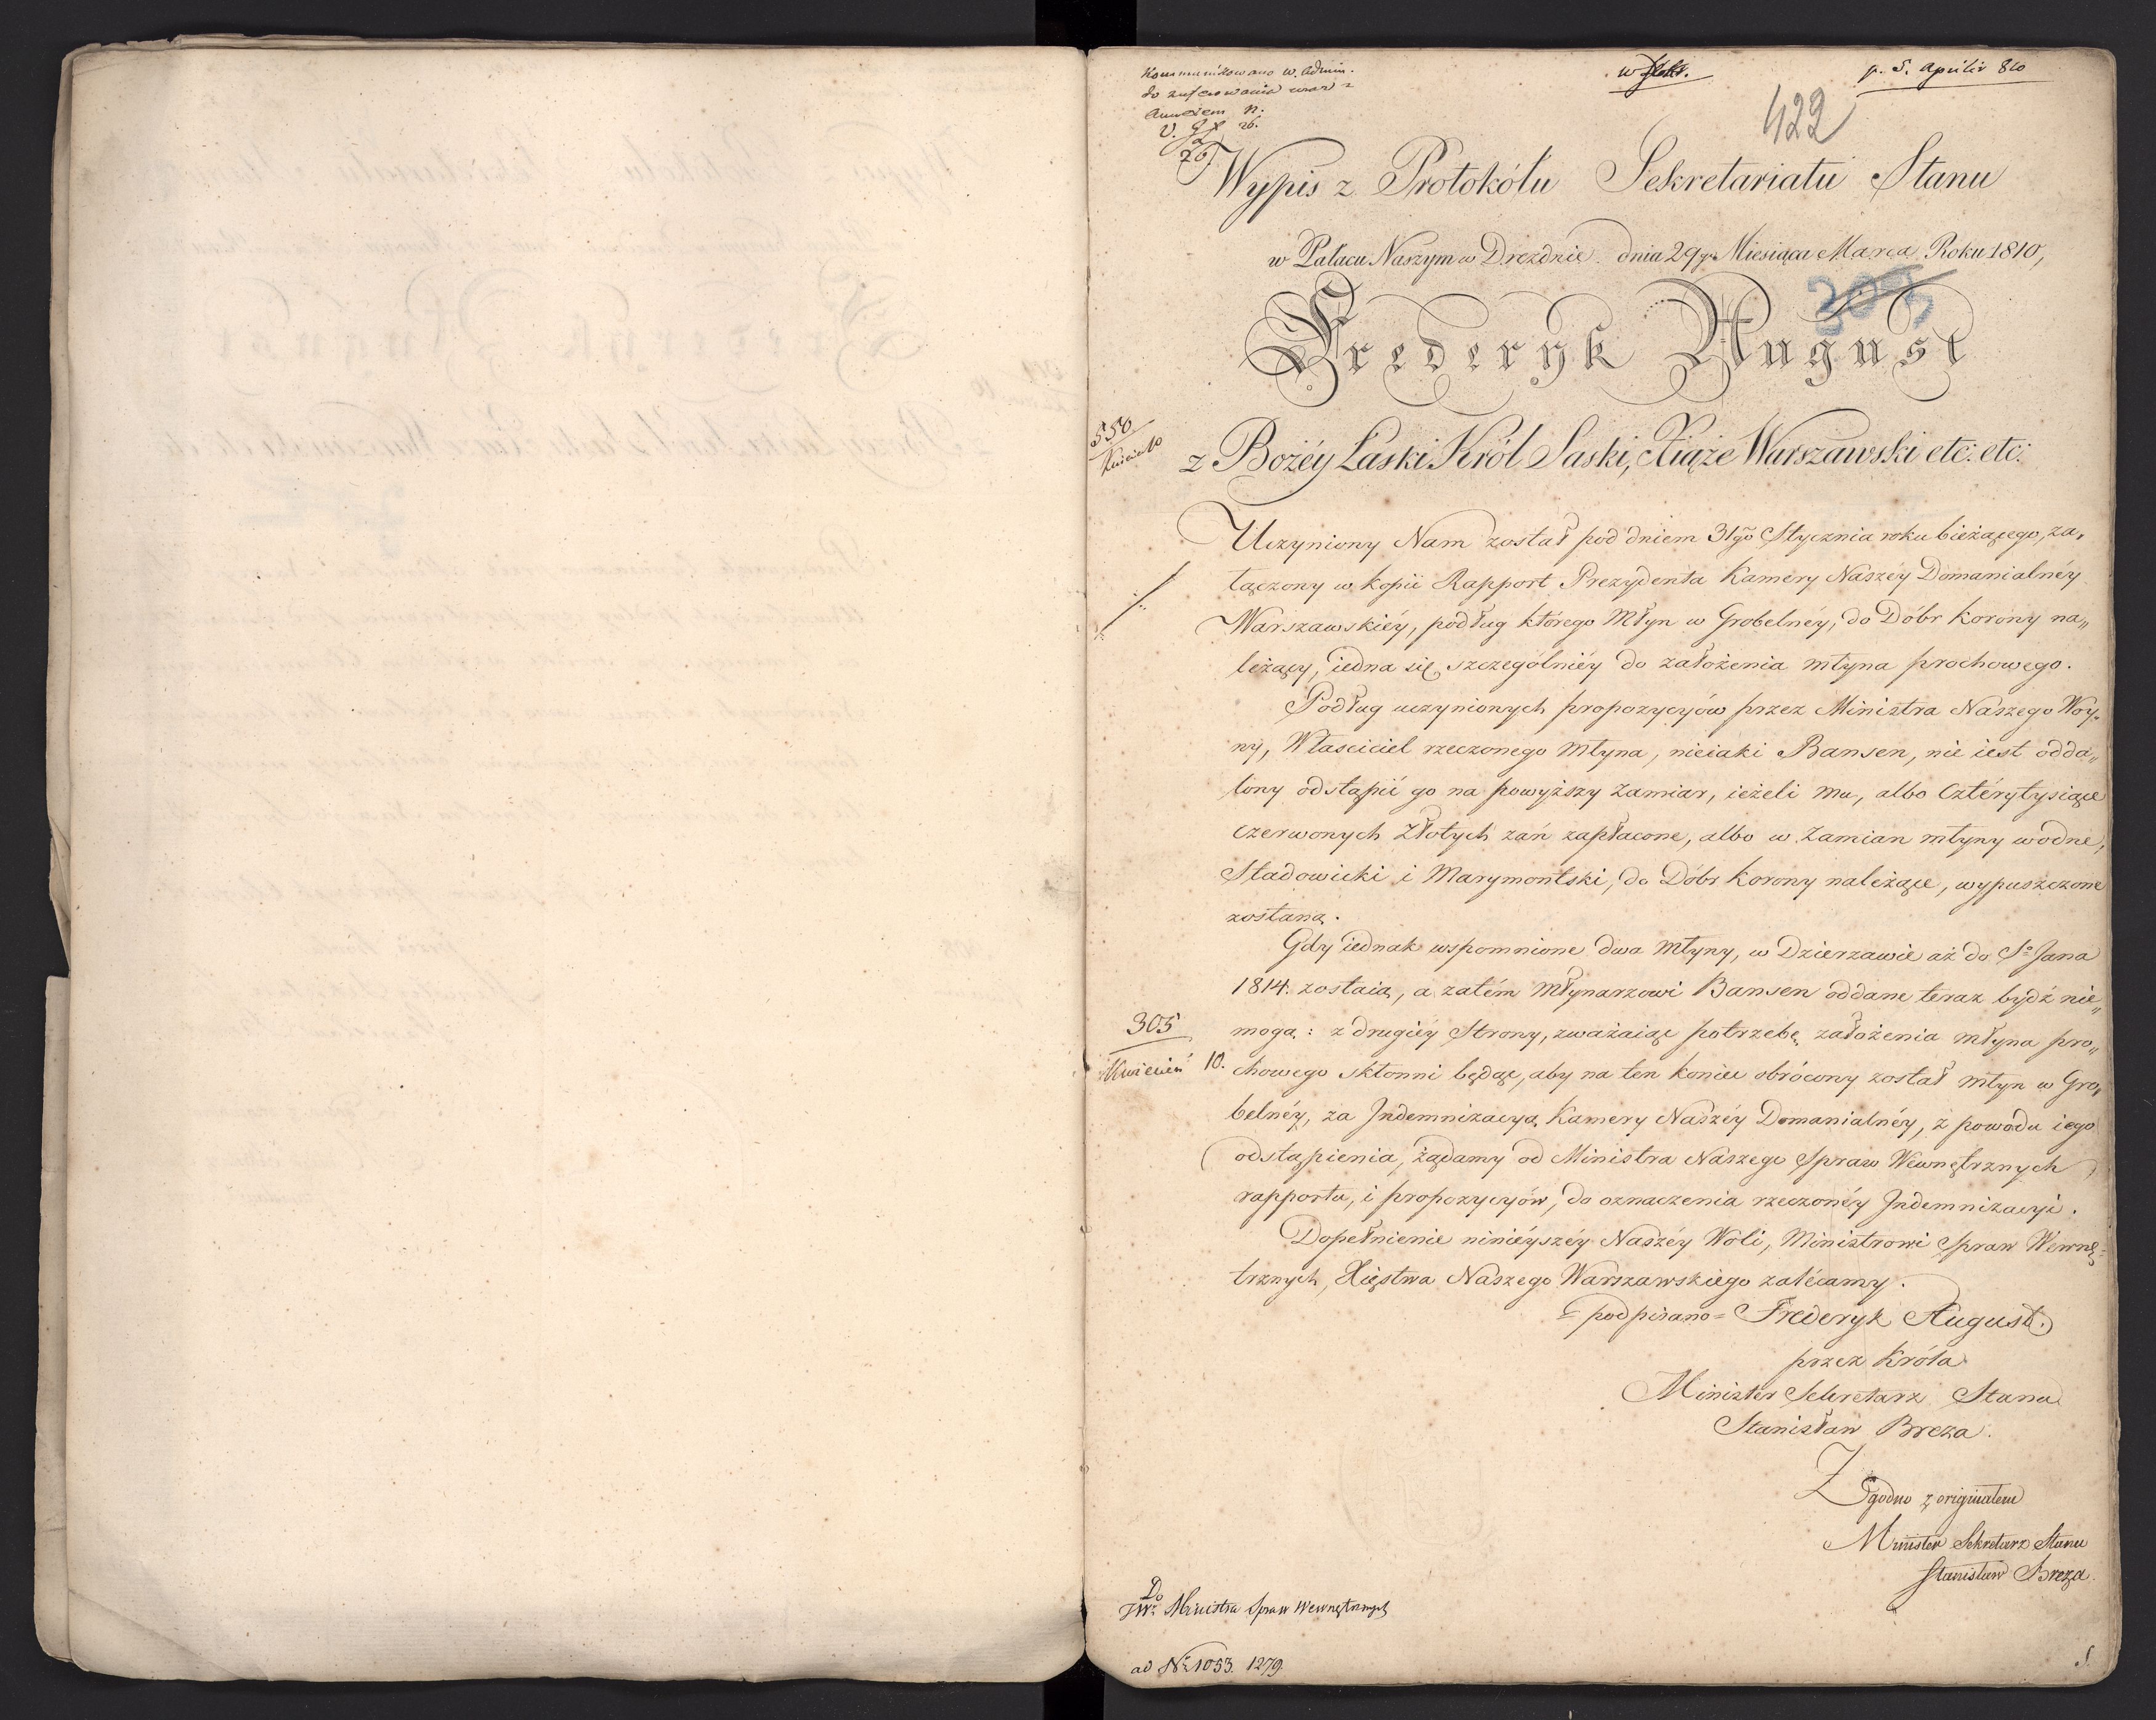 Kommunikowano w. Admin.
do zuferowania wraz z
Annexem n:
26.
p. 5. Aprilis 810
422
Wypis z Protokółu Sekretariatu Stanu
w Pałacu Naszym w Dreznie. dnia 29go Miesiąca Marca Roku 1810,
Frederyk August
550
z Bożéy Łaski Król Saski, Xiąże Warszawski etc: etc:
Uczyniony Nam został pod dniem 31go Stycznia roku bieżącego, za,,
łączony w kopii Rapport Prezydenta Kamery Naszey Domanialnéy
Warszawskiéy, podług którego Młyn w Grobelnéy, do Dóbr Korony na,,
leżący, iedna się szczególniéy do założenia młyna prochowego.
Podług uczynionych propozycyów przez Ministra Naszego Woy,,
ny, Właściciel rzeczonego Młyna, nieiaki Bansen, nie iest odda,,
lony odstąpić go na powyższy zamiar, ieżeli mu, albo Cztérytysiące
czerwonych Złotych zań zapłacone, albo w zamian młyny wodne,
Sładowicki i Marymontski, do Dóbr Korony należące, wypuszczone
zostaną.
Gdy iednak wspomnione dwa Młyny, w Dzierzawie aż do So Jana
1814. zostaią, a zatém Młynarzowi Bansen oddane teraz bydź nie,,
303
mogą: z drugiéy Strony, zważaiąc potrzebę założenia młyna pro,,
Kwiecień 10.
chowego skłonni będąc, aby na ten koniec obrócony został młyn w Gro,,
belnéy, za Indemnizacyą Kamery Naszéy Domanialnéy, z powodu iego
odstąpienia, żądamy od Ministra Naszego Spraw Wewnętrznych
rapportu, i propozycyów, do oznaczenia rzeczonéy Indemnizacyi.
Dopełnienie niniéyszéy Naszéy Woli, Ministrowi Spraw Wewnę=
trznych, Xięstwa Naszego Warszawskiego zalécamy.
= podpisano = Frederyk August.
przez Króla
Minister Sekretarz Stanu
Stanisław Breza.
Zgodno z originałem
Minister Sekretarz Stanu
Stanisław Breza.
Do
JWo Ministra Spraw Wewnętrznych
ad No 1053. 1279.